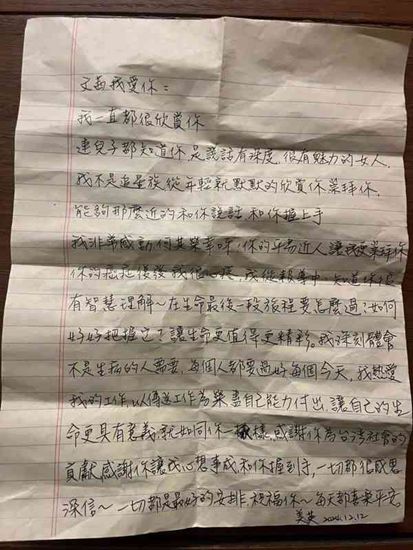 文茜我愛你：
我一直都很欣賞你
連兒子都知道你是說話有深度很有魅力的女人
我不是追星族從年輕就默默的欣賞你崇拜你
能夠那麼近的和你說話和你握上手
我非常感動何其榮幸呀，你的平易近人讓我更崇拜你
你的 我從報導中知道你很
有智慧理解～在生命最後一段旅程要怎麼過？如何
好好把握它？讓生命更值得更精彩。我深刻體會
不是生病的人需要，每個人都要過好每個今天，我熱愛
我的工作，以傳送工作為榮盡自己能力付出，讓自己的生
命更具有意義就如同你一樣，感謝你為台灣社會的
貢獻感謝你讓我心想事成和你握到手，一切都很感恩
深信～一切都是最好的安排，祝福你～每天都喜樂平安
美英 2024.12.12